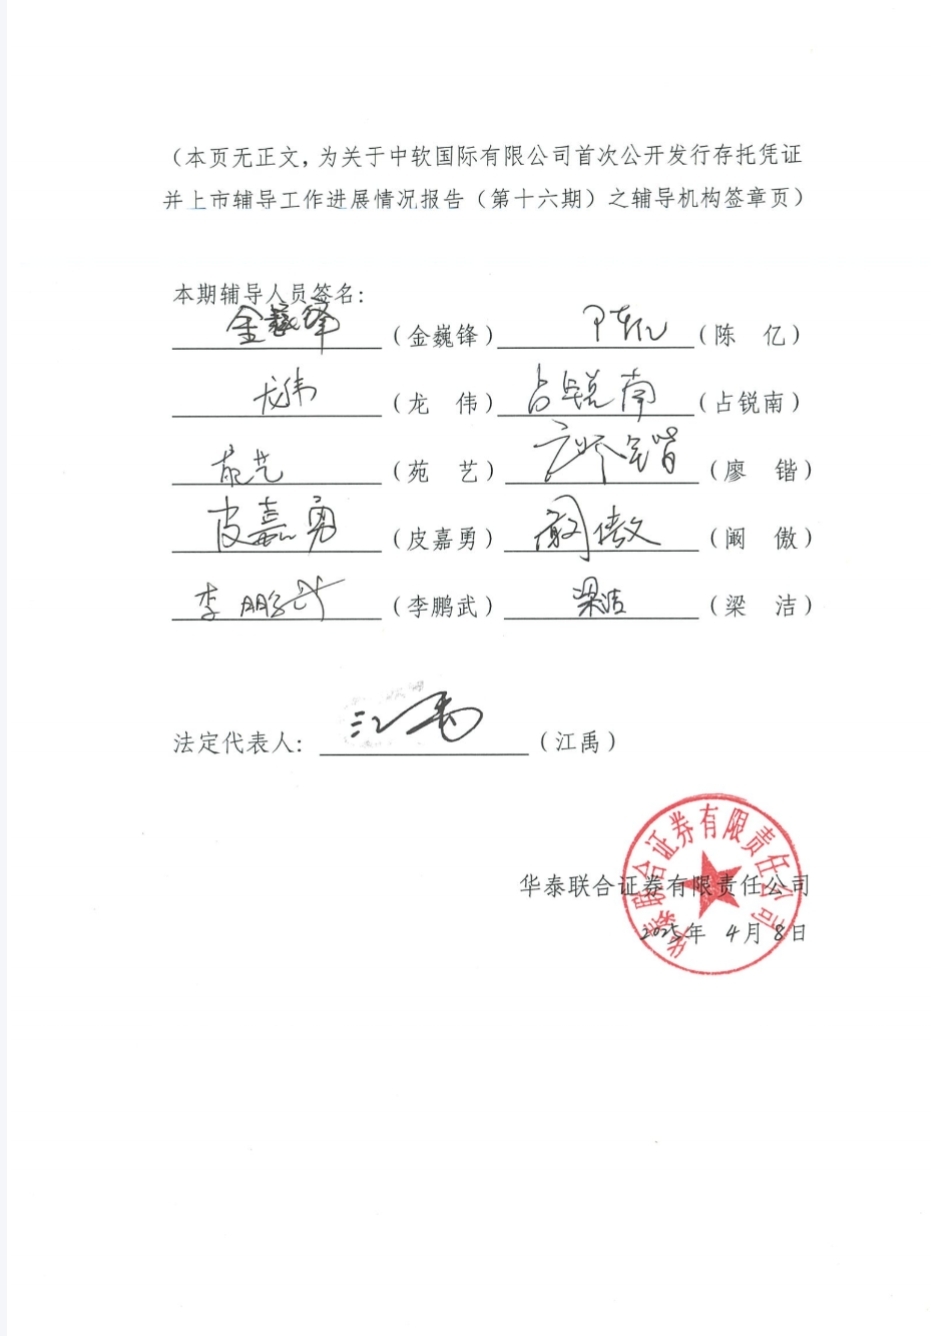 （本页无正文，为关于中软国际有限公司首次公开发行存托凭证
并上市辅导工作进展情况报告（第十六期）之辅导机构签章页）
本期辅导人员签名：
金巍锋（金巍锋） 陈亿（陈 亿）
龙伟（龙 伟） 占锐南（占锐南）
苑艺（苑 艺） 廖锴（廖 锴）
皮嘉勇（皮嘉勇） 阚傲（阚 傲）
李鹏武（李鹏武） 梁洁（梁 洁）
法定代表人： 江禹（江禹）
华泰联合证券有限责任公司
华泰联合证券有限责任公司
2025年 4月 8日